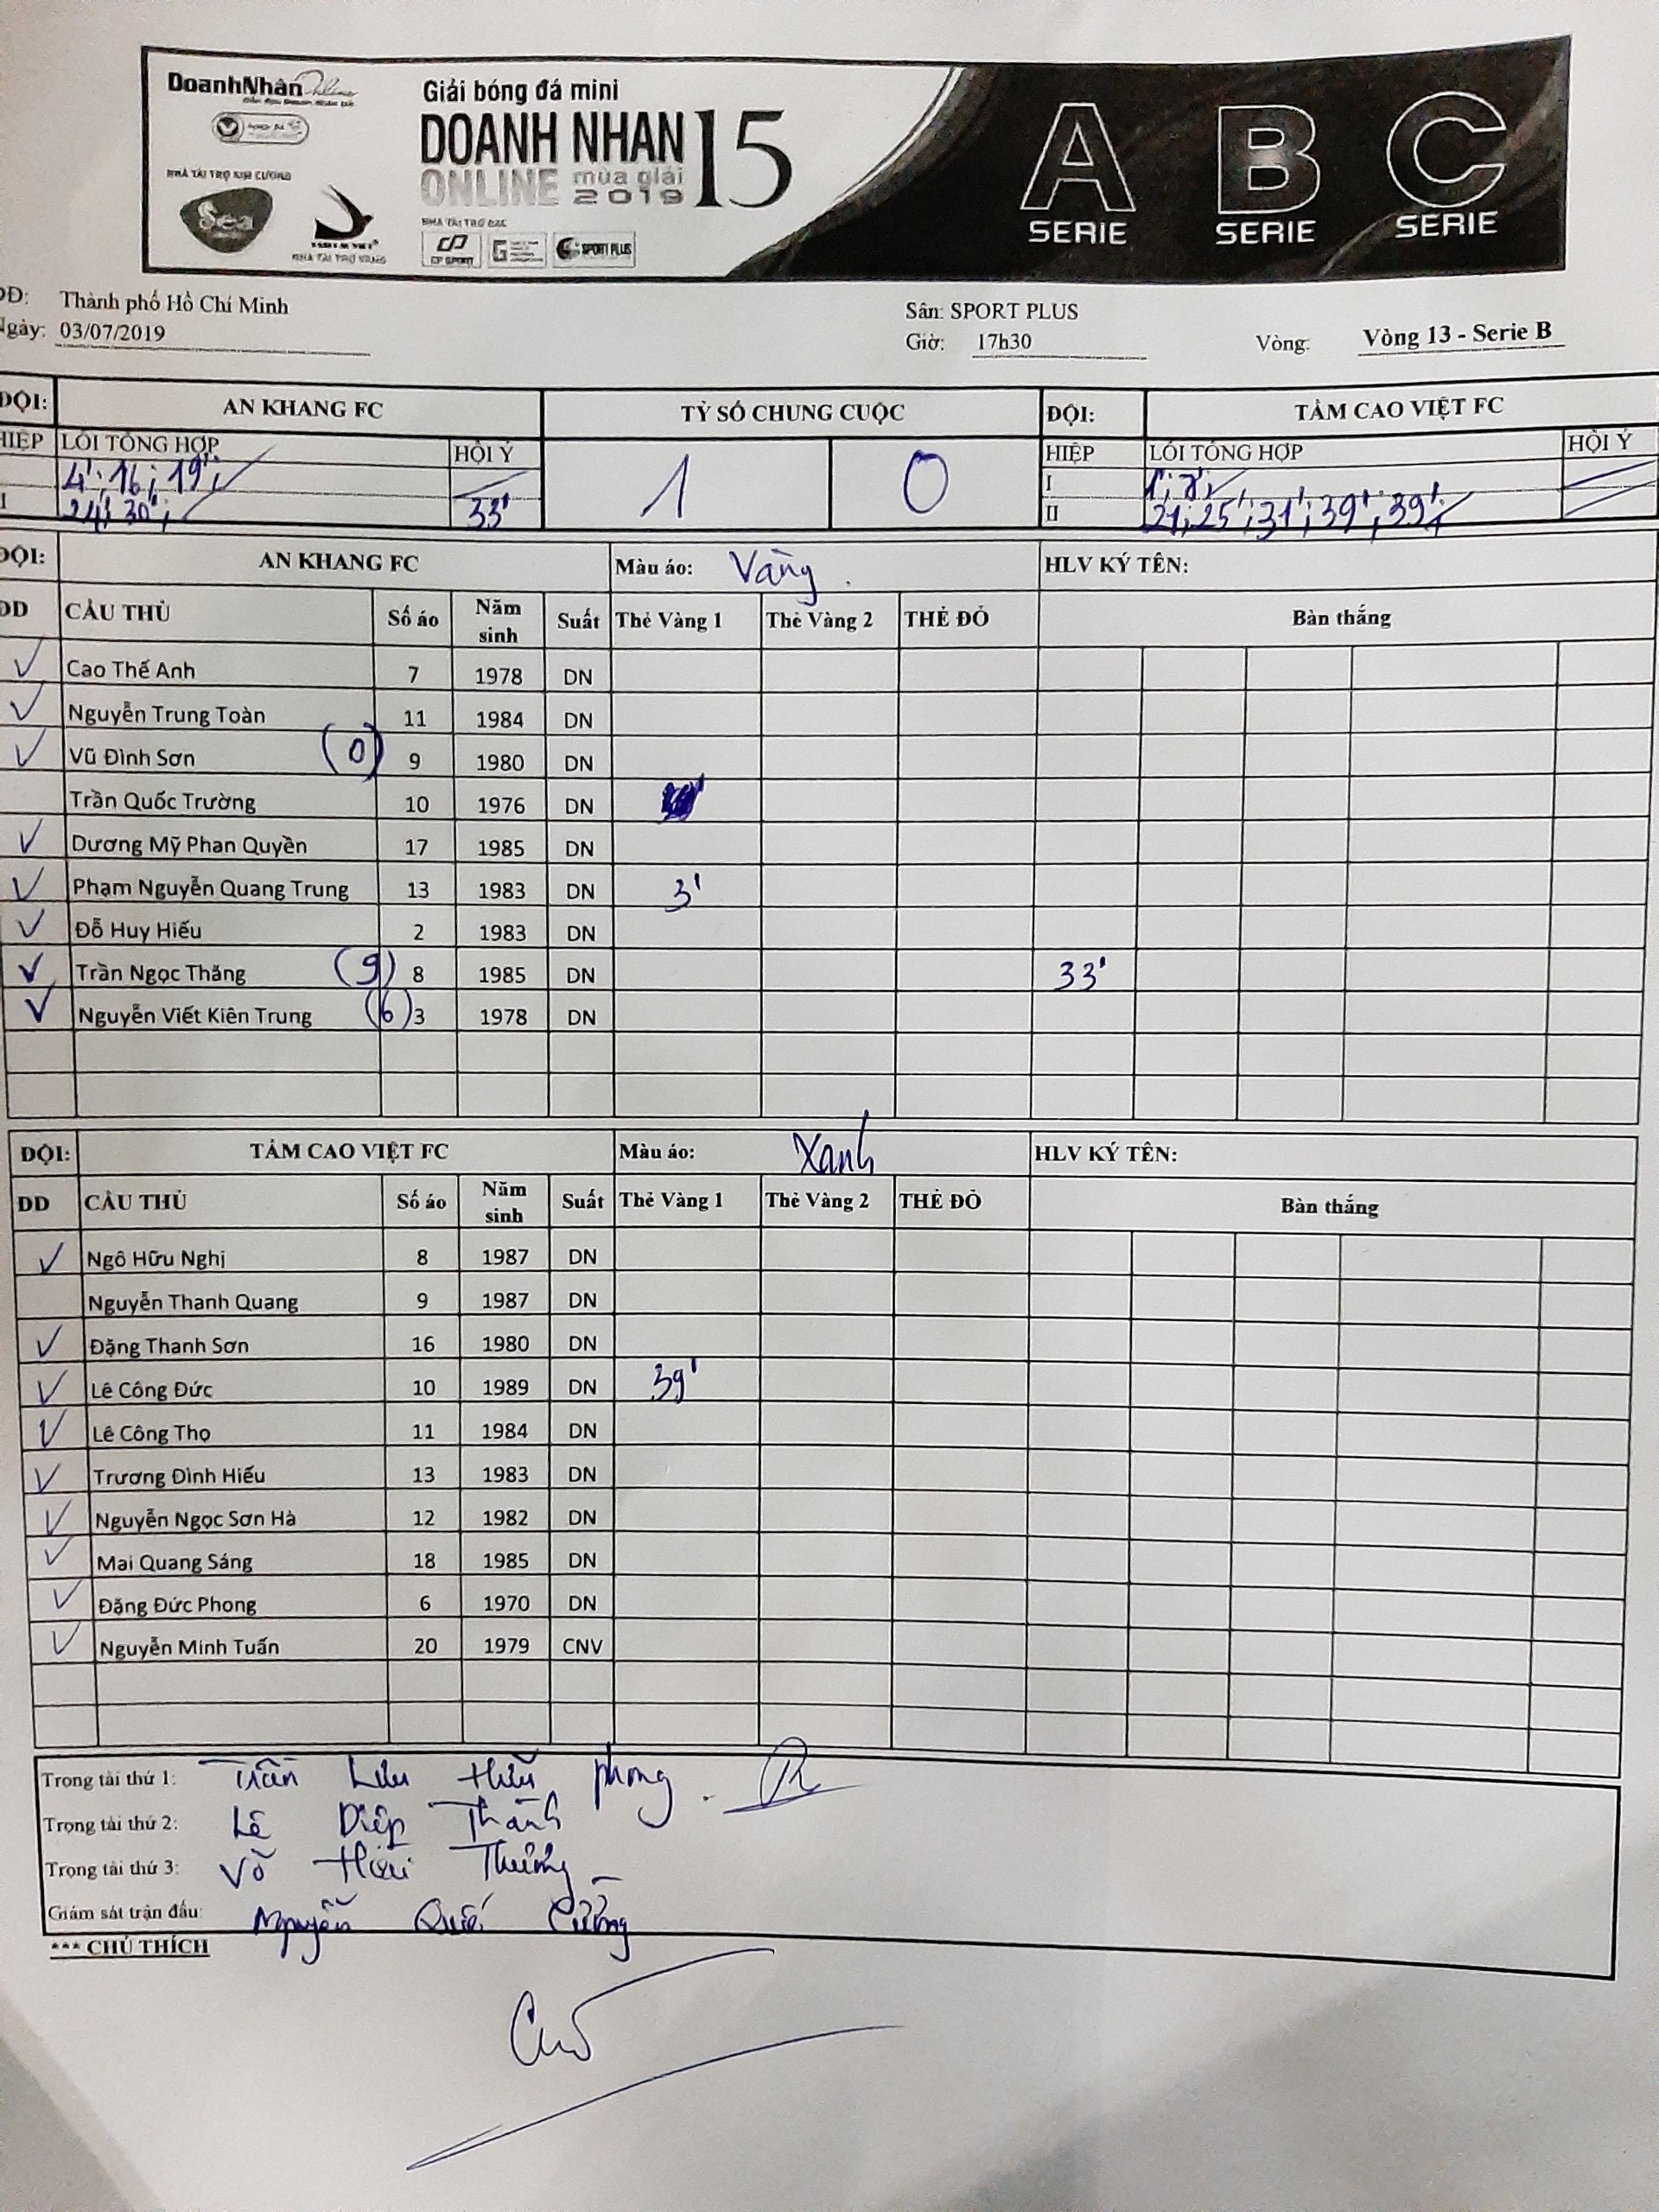 DoanhNhân Online
Giải bóng đá mini
DOANH NHAN 15
ONLINE mùa giải 2019
NHÀ TÀI TRỢ KIM CƯƠNG
Sea
NHÀ TÀI TRỢ VÀNG
NHÀ TÀI TRỢ BẠC
CP SPORT
SPORT PLUS
A B C
SERIE SERIE SERIE
DĐ: Thành phố Hồ Chí Minh Sân: SPORT PLUS
Ngày: 03/07/2019 Giờ: 17h30 Vòng: Vòng 13 - Serie B
ĐỘI: AN KHANG FC TỶ SỐ CHUNG CUỘC ĐỘI: TẦM CAO VIỆT FC
HIỆP LỖI TỔNG HỢP HỘI Ý 1 0 HIỆP LỖI TỔNG HỢP HỘI Ý
4'; 16; 19'; I
I 24'; 30'; 33' II 21; 25'; 31'; 39'; 39'
ĐỘI: AN KHANG FC Màu áo: Vàng. HLV KÝ TÊN:
DD CẦU THỦ Số áo Năm sinh Suất Thẻ Vàng 1 Thẻ Vàng 2 THẺ ĐỎ Bàn thắng
Cao Thế Anh 7 1978 DN
Nguyễn Trung Toàn 11 1984 DN
Vũ Đình Sơn (0) 9 1980 DN
Trần Quốc Trường 10 1976 DN
Dương Mỹ Phan Quyền 17 1985 DN
Phạm Nguyễn Quang Trung 13 1983 DN 3'
Đỗ Huy Hiếu 2 1983 DN
Trần Ngọc Thăng (9) 8 1985 DN 33'
Nguyễn Viết Kiên Trung (6) 3 1978 DN
ĐỘI: TẦM CAO VIỆT FC Màu áo: Xanh HLV KÝ TÊN:
DD CẦU THỦ Số áo Năm sinh Suất Thẻ Vàng 1 Thẻ Vàng 2 THẺ ĐỎ Bàn thắng
Ngô Hữu Nghị 8 1987 DN
Nguyễn Thanh Quang 9 1987 DN
Đặng Thanh Sơn 16 1980 DN
Lê Công Đức 10 1989 DN 39'
Lê Công Thọ 11 1984 DN
Trương Đình Hiếu 13 1983 DN
Nguyễn Ngọc Sơn Hà 12 1982 DN
Mai Quang Sáng 18 1985 DN
Đặng Đức Phong 6 1970 DN
Nguyễn Minh Tuấn 20 1979 CNV
Trọng tài thứ 1: Trần Lưu Hữu phong.
Trọng tài thứ 2: Lê Diệp Thành
Trọng tài thứ 3: Võ
Giám sát trận đấu: Nguyễn Quốc Cường
*** CHÚ THÍCH